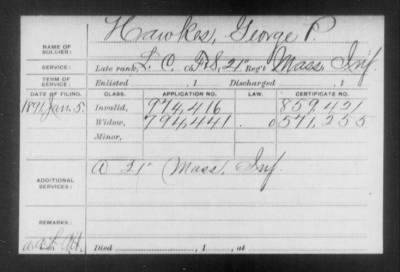 Hawkes, George P.
NAME OF SOLDIER:
SERVICE: Late rank, L. C. Co. F.S, 21" Reg't Mass. Inf.
TERM OF SERVICE: Enlisted , 1 Discharged , 1
DATE OF FILING. CLASS. APPLICATION NO. LAW. CERTIFICATE NO.
1891 Jan. 5. Invalid, 974,416 859,421
Widow, 794,441 571,255
Minor,
ADDITIONAL SERVICES: A 21" Mass. Inf.
REMARKS:
Died , 1 , at